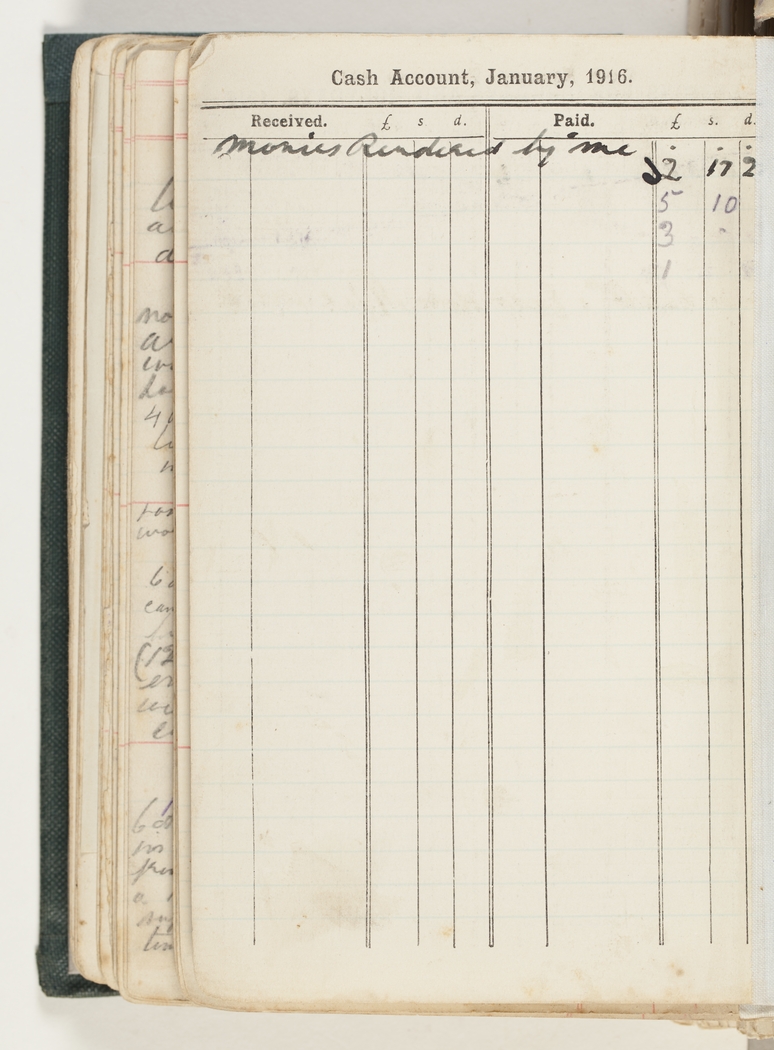 Cash Account, January, 1916.
Received. £ s d. Paid. £ s. d.
Monies Rendered by me
2 17 2
5 10
3 -
1
no
a
4
(12